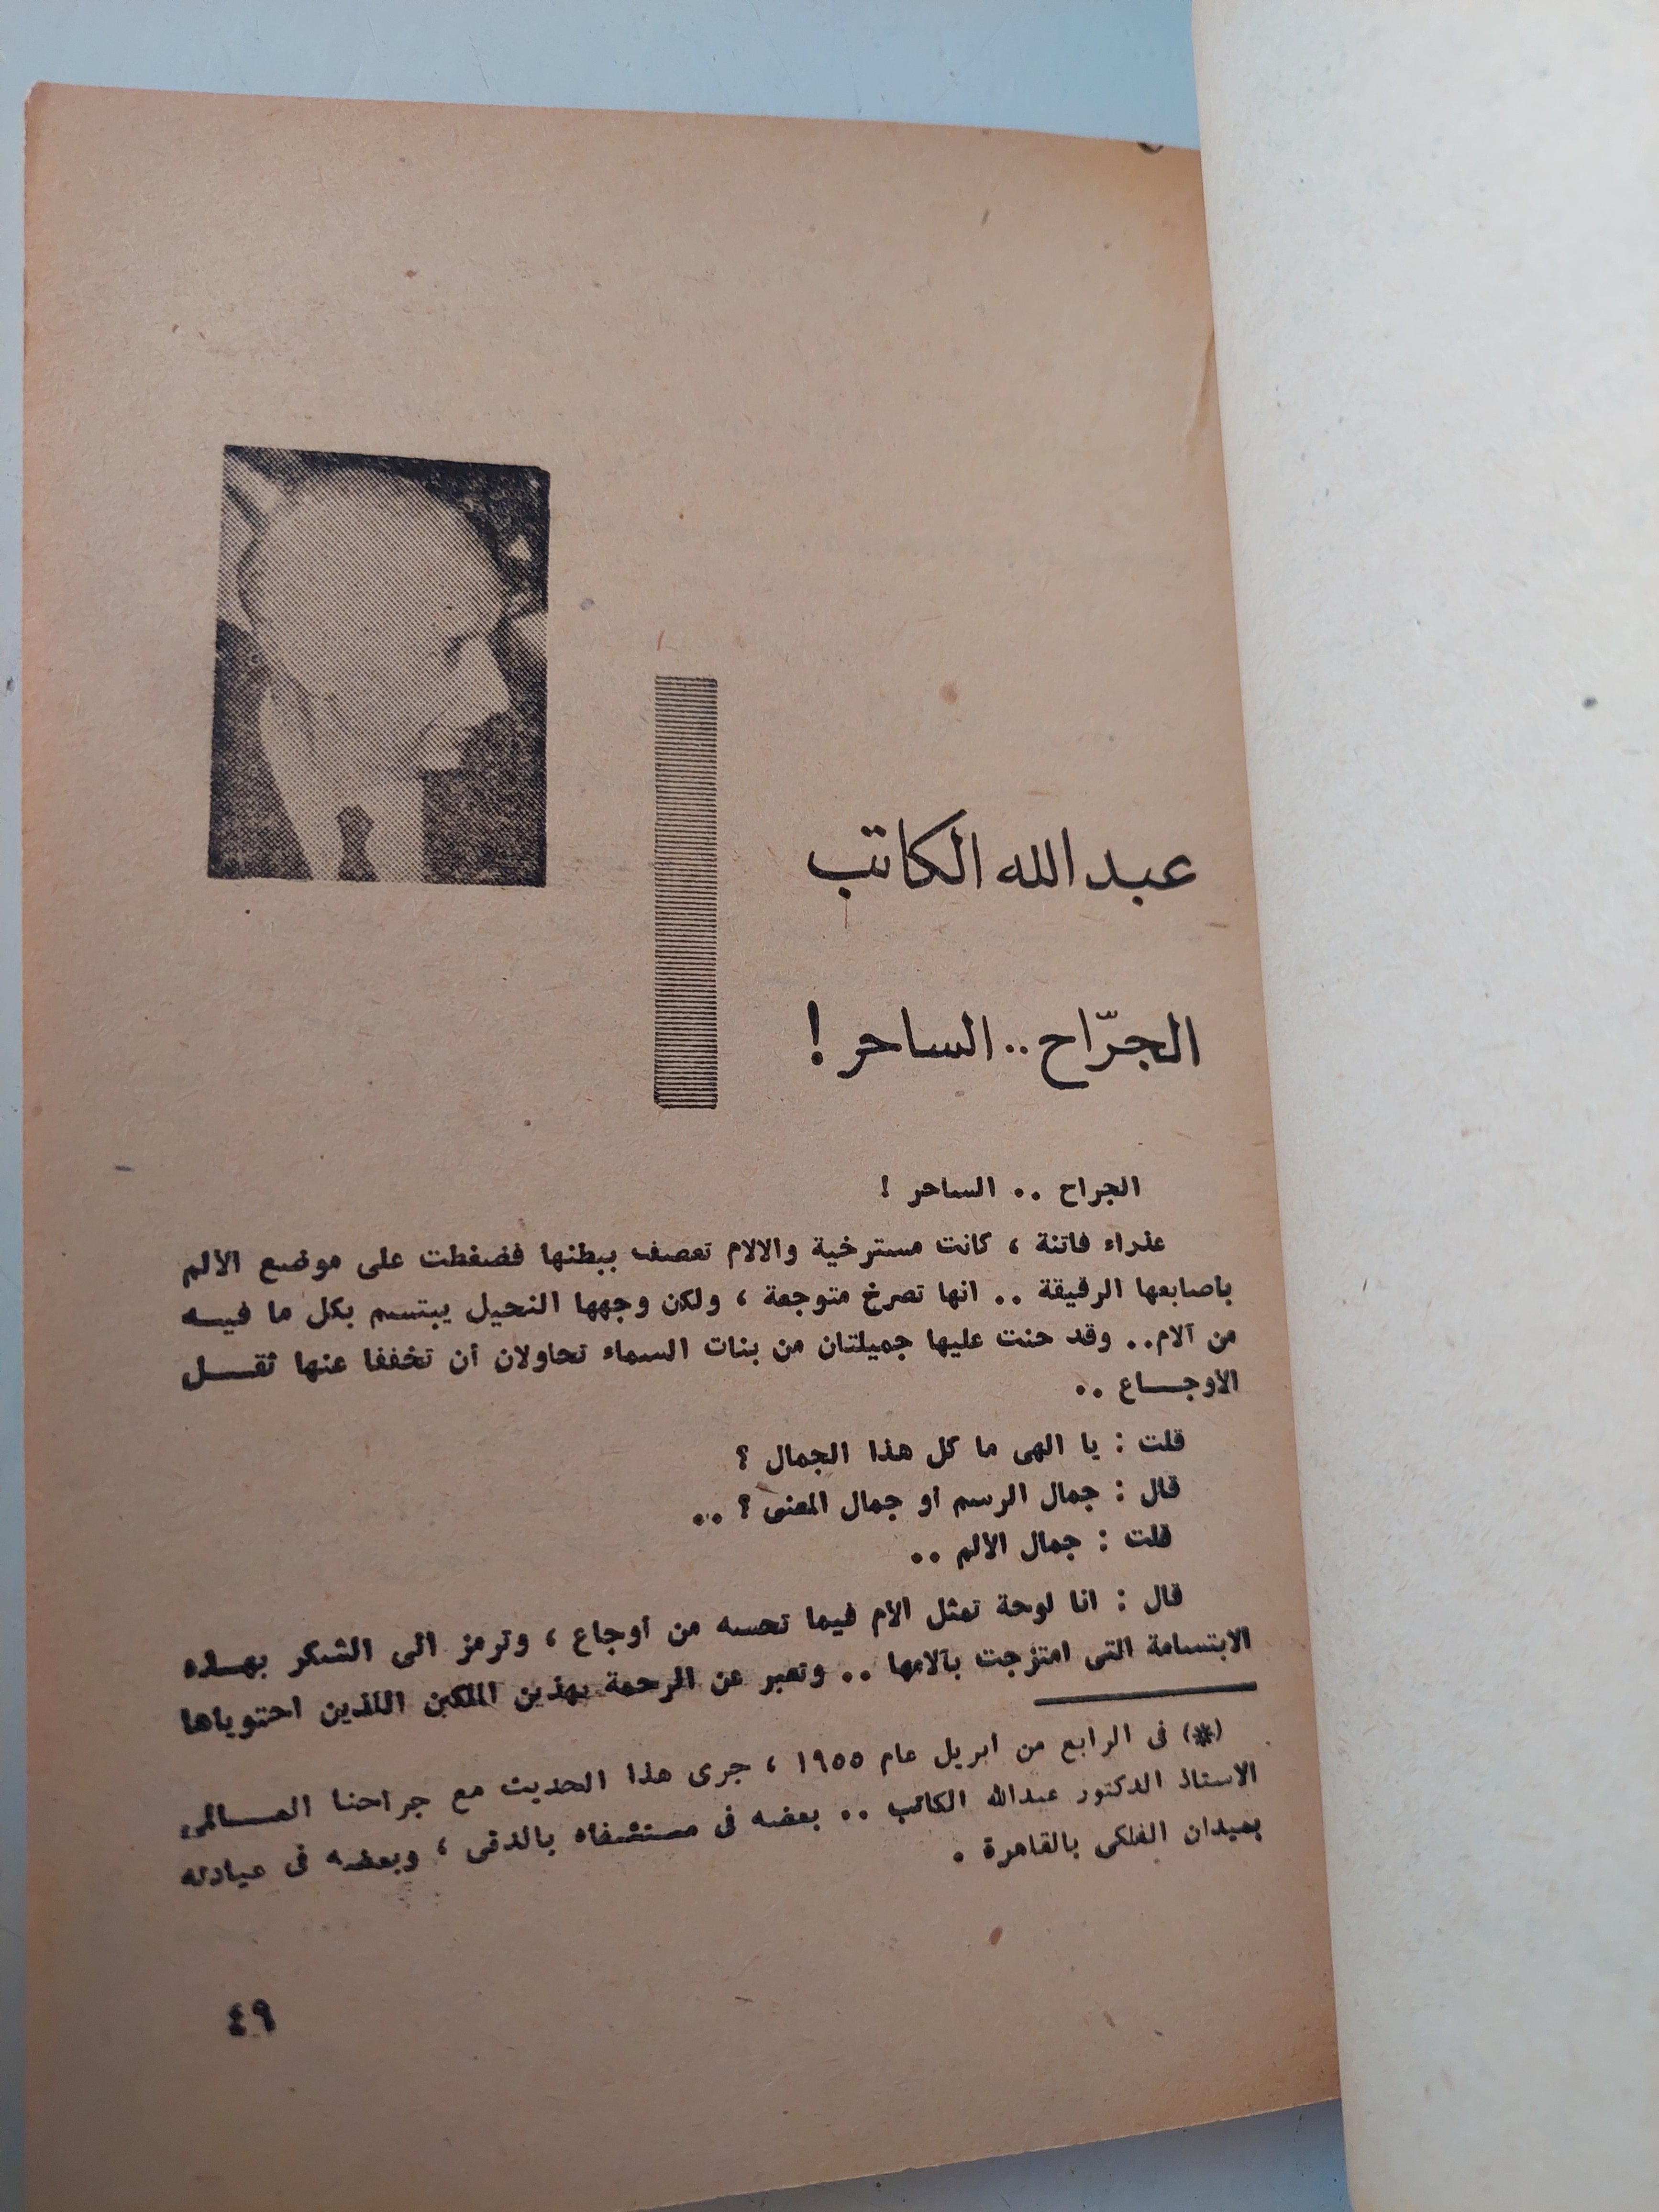 عبد الله الكاتب
الجرّاح .. الساحر !
الجراح .. الساحر !
عذراء فاتنة ، كانت مسترخية والالام تعصف ببطنها فضغطت على موضع الألم
بأصابعها الرقيقة .. انها تصرخ متوجعة ، ولكن وجهها النحيل يبتسم بكل ما فيـــه
من آلام.. وقد حنت عليها جميلتان من بنات السماء تحاولان أن تخففا عنها ثقـــل
الأوجـــاع ..
قلت : يا الهى ما كل هذا الجمال ؟
قال : جمال الرسم أو جمال المعنى ؟ ..
قلت : جمال الألم ..
قال : انا لوحة تمثل الأم فيما تحسه من أوجاع ، وترمز الى الشكر بهـــذه
الابتسامة التى امتزجت بآلامها .. وتعبر عن الرحمة بهذين الملكين اللذين احتوياها
(*) فى الرابع من ابريل عام ١٩٥٥ ، جرى هذا الحديث مع جراحنا العـــالمى
الاستاذ الدكتور عبدالله الكاتب .. بعضه فى مستشفاه بالدقى ، وبعضه فى عيادته
بميدان الفلكى بالقاهرة .
٤٩